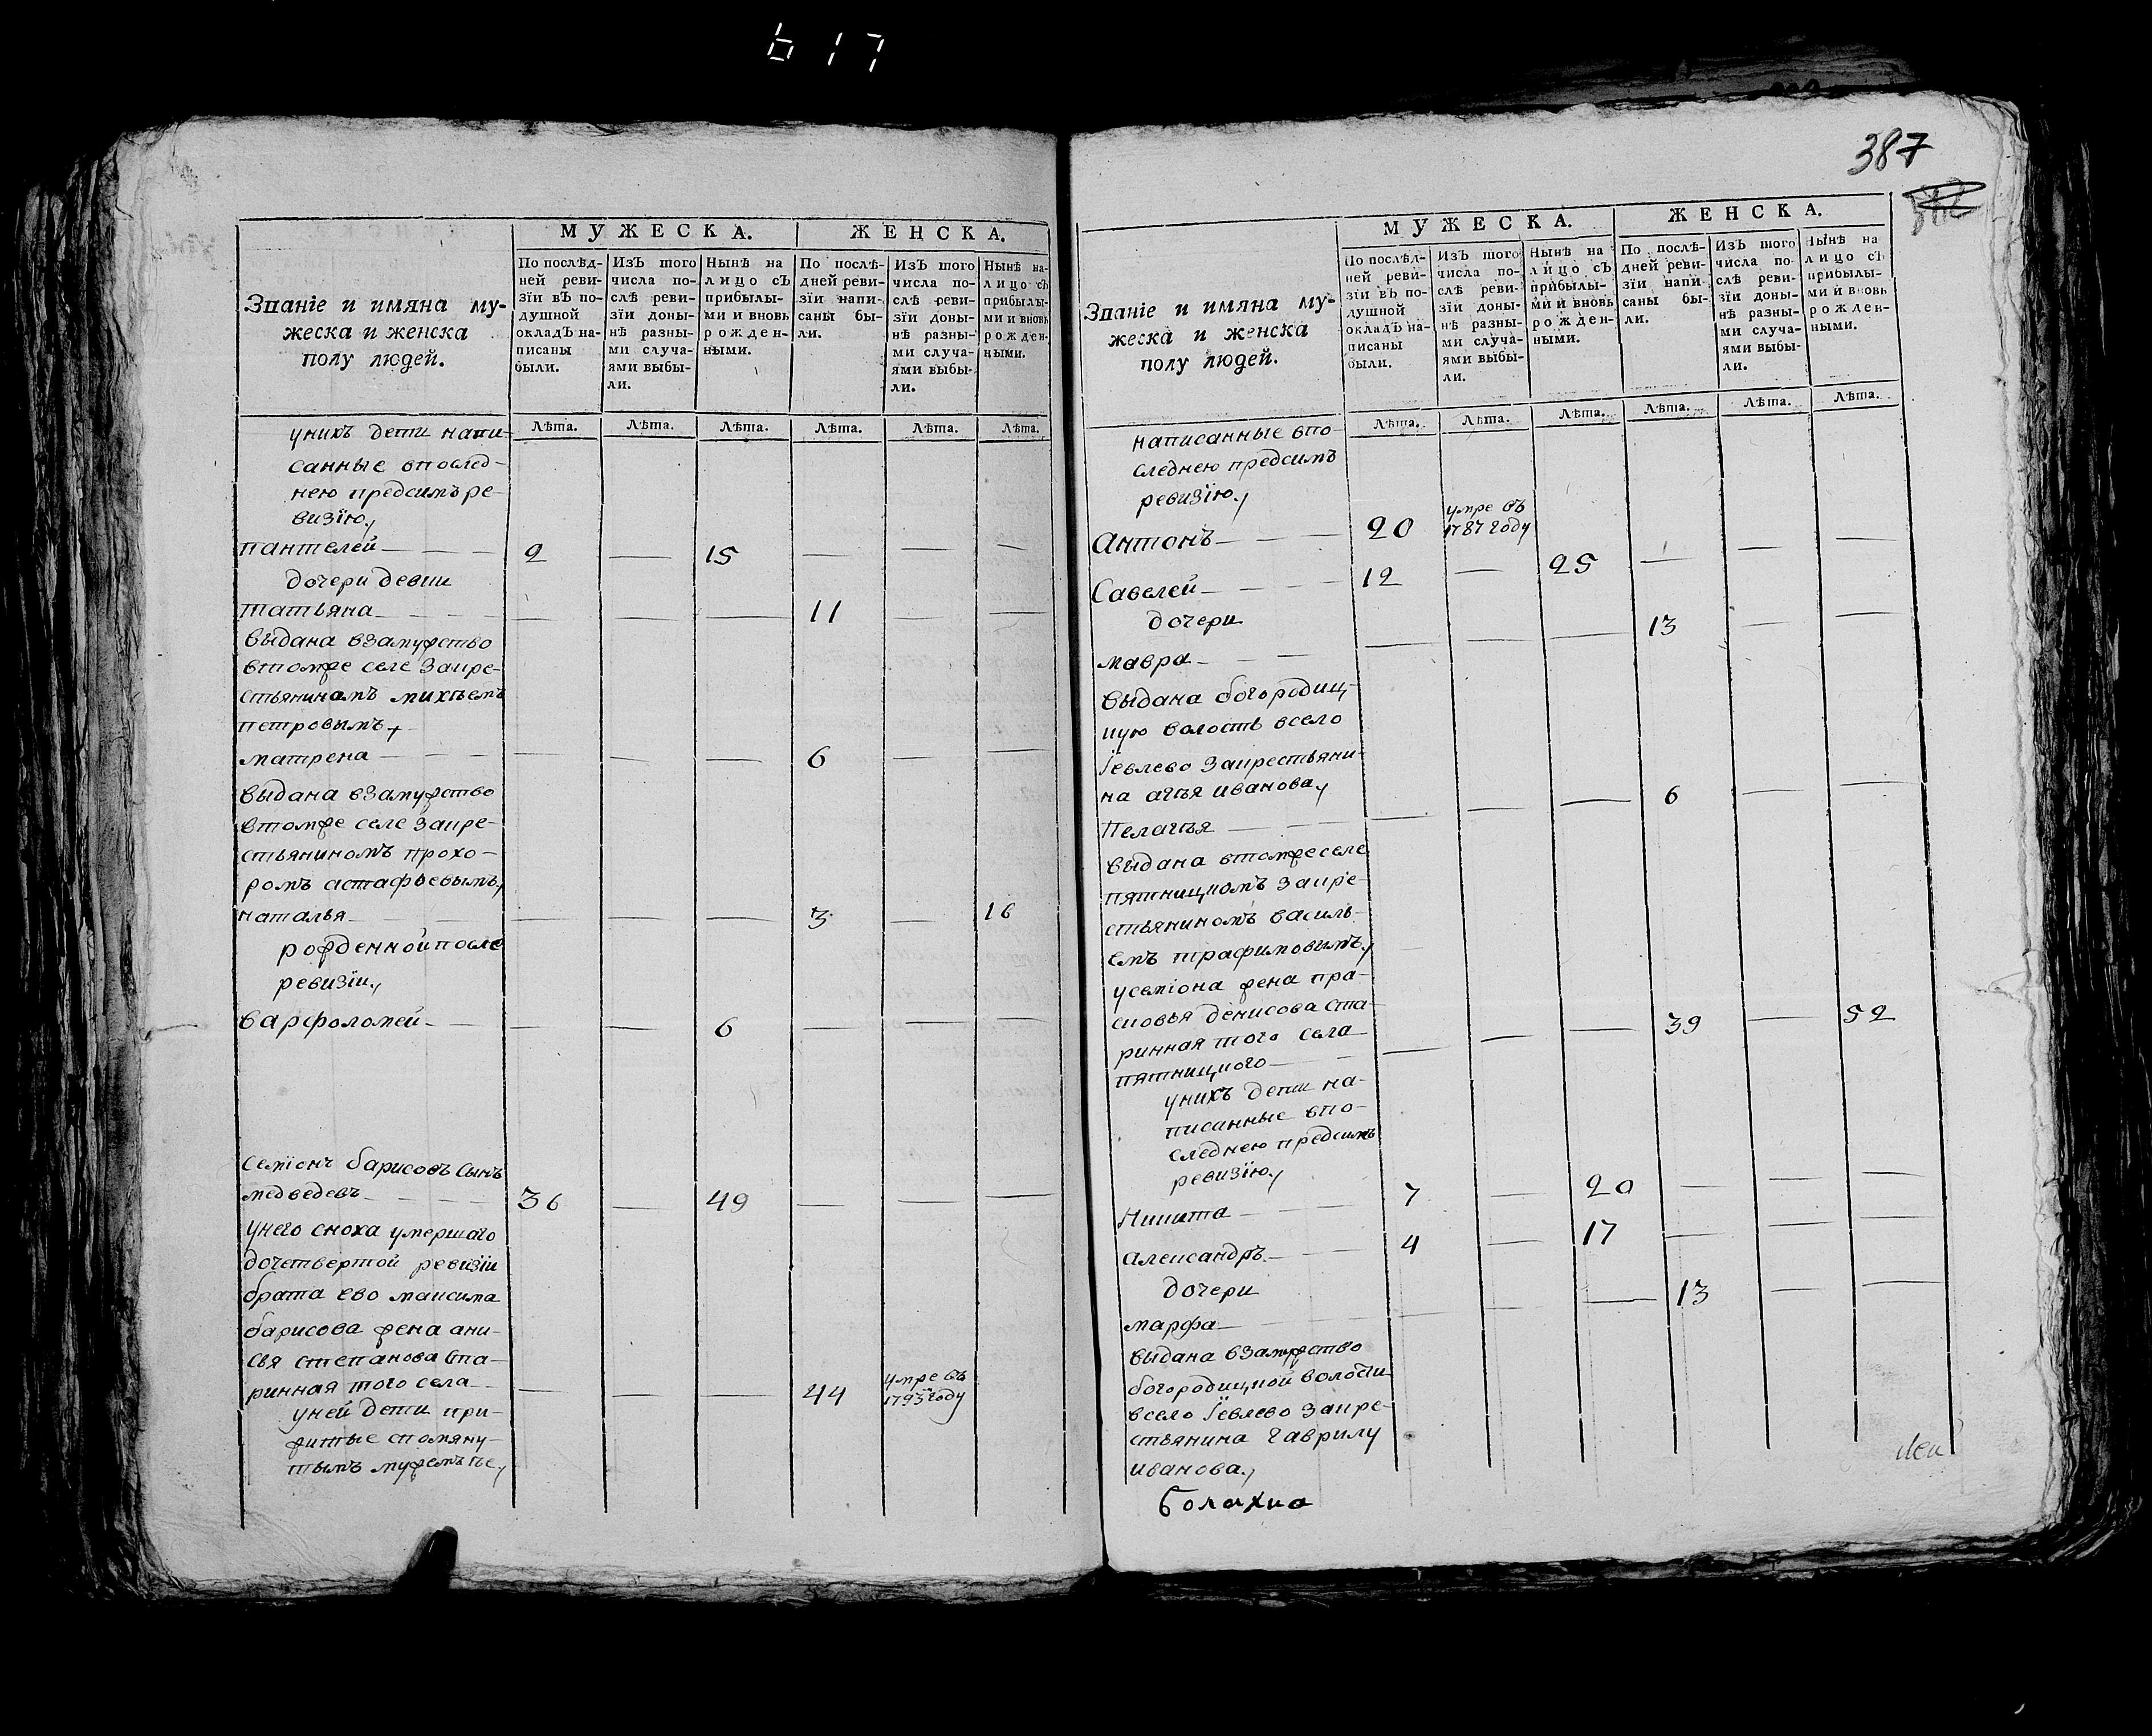 617
МУЖЕСКА. ЖЕНСКА.
Званіе и имяна му-
жеска и женска
полу людей.
По послѣд-
ней реви-
зїи въ по-
душной
окладъ на-
писаны
были.
Изъ того
числа по-
слѣ реви-
зїи доны-
нѣ разны-
ми случа-
ями выбы-
ли.
Нынѣ на
лицо съ
прибылы-
ми и вновь
рожден-
ными.
По послѣ-
дней реви-
зїи напи-
саны бы-
ли.
Изъ того
числа по-
слѣ реви-
зїи доны-
нѣ разны-
ми случа-
ями выбы-
ли.
Нынѣ на-
лицо съ
прибылы-
ми и вновь
рожден-
ными.
Лѣта. Лѣта. Лѣта. Лѣта. Лѣта. Лѣта.
унихъ дети напи-
санные впослед-
нею предсимъ ре-
визїю,
пантелей — 2 — 15 — — —
дочери девки
татьяна — — — — 11 — —
выдана взамужство
втомже селе закре-
стьянинамъ михѣемъ
петровымъ
матрена — — — — 6 — —
выдана взамужство
втомже селе закре-
стьяниномъ прохо-
ромъ астафьевымъ,
наталья — — — — 3 — 16
рожденной после
ревизїи,
варфоломей — — — 6 — — —
семїонъ барисовъ сынъ
медведевъ — 36 — 49 — — —
унего сноха умершаго
дочетвертой ревизїи
брата ево максима
барисова жена ани-
сья степанова ста-
ринная того села — — — — 44 умре въ 1793 году
уней дети при-
житые спомяну-
тымъ мужемъ ее,
387
МУЖЕСКА. ЖЕНСКА.
Званіе и имяна му-
жеска и женска
полу людей.
По послѣд-
ней реви-
зїи въ по-
душной
окладъ на-
писаны
были.
Изъ того
числа по-
слѣ реви-
зїи доны-
нѣ разны-
ми случа-
ями выбы-
ли.
Нынѣ на
лицо съ
прибылы-
ми и вновь
рожден-
ными.
По послѣ-
дней реви-
зїи напи-
саны бы-
ли.
Изъ того
числа по-
слѣ реви-
зїи доны-
нѣ разны-
ми случа-
ями выбы-
ли.
Нынѣ на
лицо съ
прибылы-
ми и вновь
рожден-
ными.
Лѣта. Лѣта. Лѣта. Лѣта. Лѣта. Лѣта.
написанные впо-
следнею предсимъ
ревизїю,
Антонъ — 20 умре въ 1787 году — — —
Савелей — 12 — 25 — — —
дочери
мавра — — — — 13 — —
выдана богородиц-
кую волость всело
Іевлево закрестьяни-
на агѣя иванова,
Пелагѣя — — — — 6 — —
выдана втомже селе
пятницкомъ закре-
стьяниномъ василь-
емъ трафимовымъ,
усемїона жена пра-
сковья денисова ста-
ринная того села
пятницкого — — — — 39 — 52
унихъ дети на-
писанные впо-
следнею предсимъ
ревизїю,
Никита — 7 — 20 — — —
Александръ — 4 — 17 — — —
дочери
марфа — — — — 13 — —
выдана взамужство
богородицкой волости
всело Іевлево закре-
стьянина гаврилу
иванова,